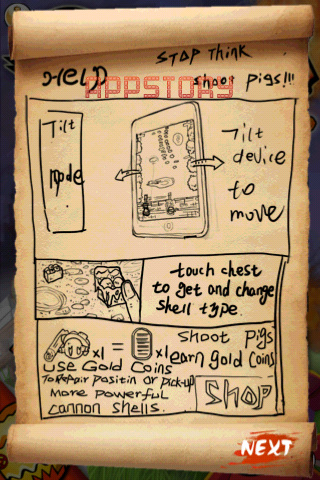 STOP Think
HELP
shoot pigs!!!
APPSTORY
Tilt
mode
Tilt
device
to
move
touch chest
to get and change
shell type
x1 = x1
Shoot Pigs
earn gold coins
use Gold Coins
To Repair positin or pick-up
more powerful
cannon shells.
SHOP
NEXT